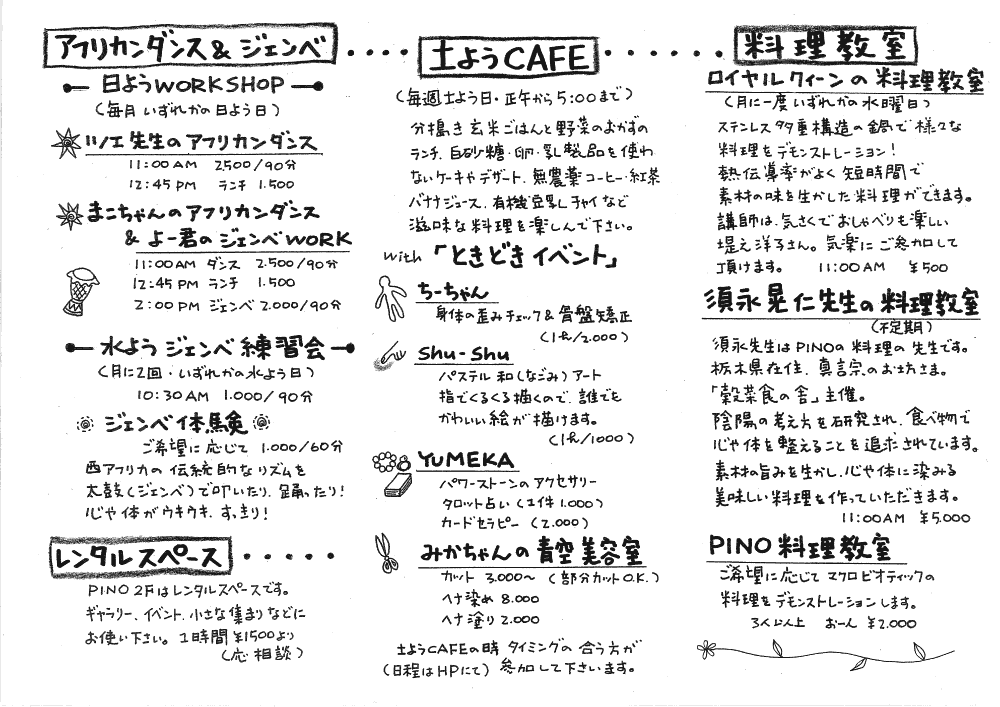 アフリカンダンス & ジェンベ
日ようWORKSHOP
(毎月 いずれかの日よう日)
ツノエ先生のアフリカンダンス
11:00AM 2500/90分
12:45PM ランチ 1.500
まこちゃんのアフリカンダンス
& よー君のジェンベWORK
11:00AM ダンス 2.500/90分
12:45PM ランチ 1.500
2:00PM ジェンベ 2.000/90分
水よう ジェンベ 練習会
(月に2回・いずれかの水よう日)
10:30AM 1.000/90分
ジェンベ体験
ご希望に応じて 1.000/60分
西アフリカの伝統的なリズムを
太鼓(ジェンベ)で叩いたり、踊ったり!
心や体がウキウキ、すっきり!
レンタルスペース
PINO 2Fはレンタルスペースです。
ギャラリー、イベント、小さな集まりなどに
お使い下さい。1時間 ¥1500より
(応相談)
土ようCAFE
(毎週土よう日・正午から5:00まで)
分搗き玄米ごはんと野菜のおかずの
ランチ、白砂糖・卵・乳製品を使わ
ないケーキやデザート、無農薬コーヒー・紅茶
バナナジュース、有機豆乳チャイなど
滋味な料理を楽しんで下さい。
with 「ときどきイベント」
ちーちゃん
身体の歪みチェック&骨盤矯正
(1h/2.000)
Shu-Shu
パステル和(なごみ)アート
指でくるくる描くので、誰でも
かわいい絵が描けます。
(1h/1000)
YUMEKA
パワーストーンのアクセサリー
タロット占い (1件 1.000)
カードセラピー (2.000)
みかちゃんの青空美容室
カット 3.000〜 (部分カットO.K.)
ヘナ染め 8.000
ヘナ塗り 2.000
土ようCAFEの時 タイミングの合う方が
(日程はHPにて) 参加して下さいます。
料理教室
ロイヤルクィーンの料理教室
(月に一度 いずれかの水曜日)
ステンレス多重構造の鍋で様々な
料理をデモンストレーション!
熱伝導率がよく短時間で
素材の味を生かした料理ができます。
講師は、気さくでおしゃべりも楽しい
堤え洋子さん。気楽にご参加して
頂けます。 11:00AM ¥500
須永晃仁先生の料理教室
(不定期)
須永先生はPINOの料理の先生です。
栃木県在住、真言宗のお坊さま。
「穀菜食の舎」主催。
陰陽の考え方を研究され、食べ物で
心や体を整えることを追求されています。
素材の旨みを生かし、心や体に染みる
美味しい料理を作っていただきます。
11:00AM ¥5.000
PINO料理教室
ご希望に応じてマクロビオティックの
料理をデモンストレーションします。
3人以上 お一人 ¥2.000